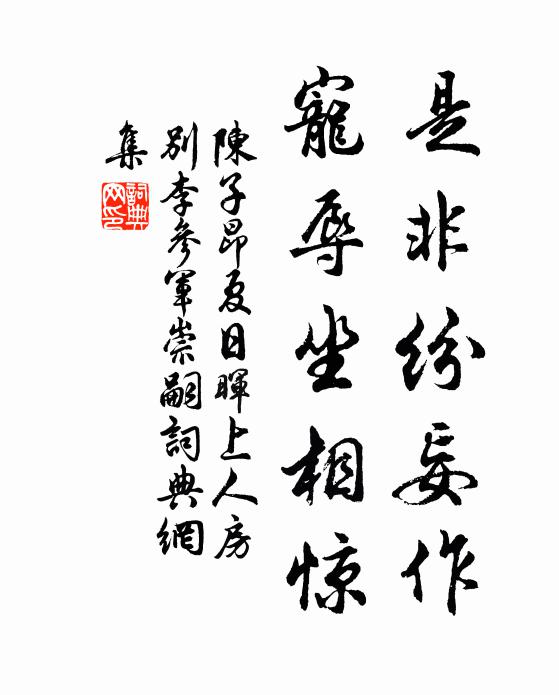 是非紛妄作
寵辱坐相惊
陳子昂夏日暉上人房
別李參軍崇嗣詞典網
集
詞典
网印